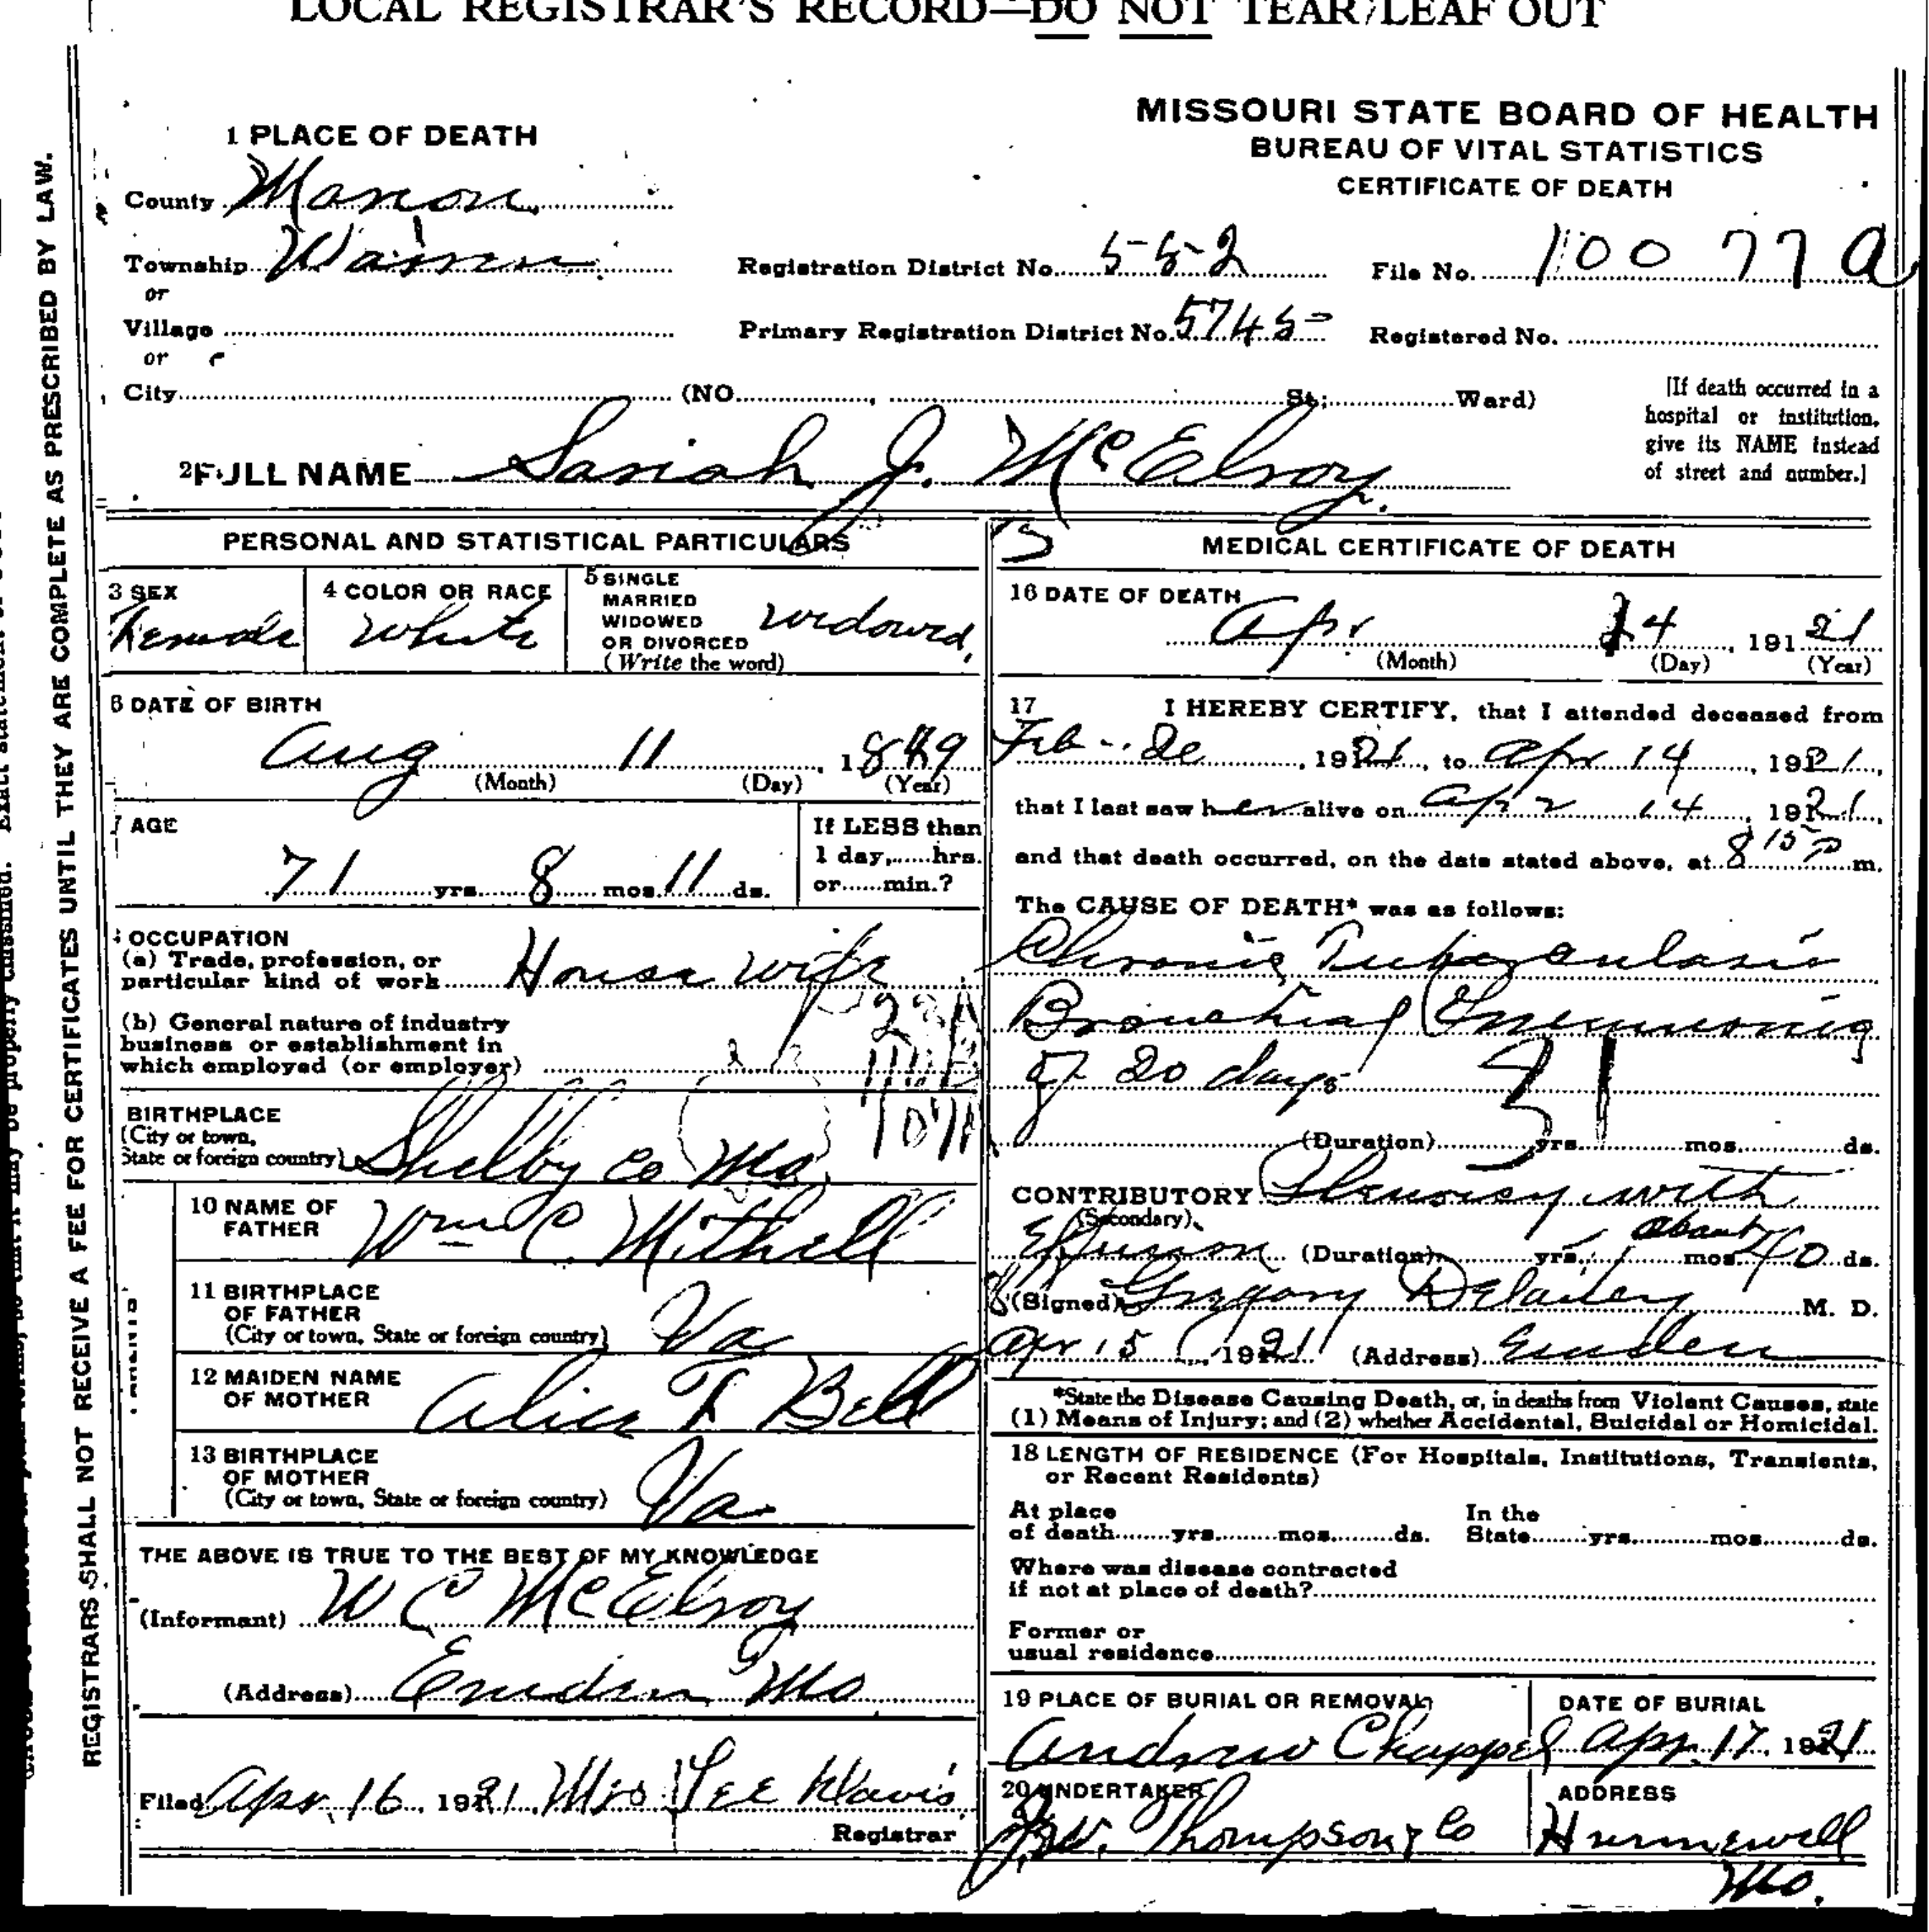 LOCAL REGISTRAR'S RECORD—DO NOT TEAR LEAF OUT
MISSOURI STATE BOARD OF HEALTH
BUREAU OF VITAL STATISTICS
CERTIFICATE OF DEATH
1 PLACE OF DEATH
County Marion
Township Warren
or
Village
or
City (NO. St; Ward)
Registration District No. 552 File No. 10077a
Primary Registration District No. 5745 Registered No.
[If death occurred in a
hospital or institution,
give its NAME instead
of street and number.]
2 FULL NAME Sariah J. McElroy.
PERSONAL AND STATISTICAL PARTICULARS
3 SEX
Female
4 COLOR OR RACE
White
5 SINGLE
MARRIED
WIDOWED
OR DIVORCED
(Write the word)
widowed,
6 DATE OF BIRTH
Aug 11, 1849
(Month) (Day) (Year)
7 AGE
71 yrs. 8 mos. 11 ds.
If LESS than
1 day,......hrs.
or......min.?
OCCUPATION
(a) Trade, profession, or
particular kind of work House wife
(b) General nature of industry
business or establishment in
which employed (or employer)
BIRTHPLACE
(City or town,
State or foreign country) Shelby Co Mo
10 NAME OF
FATHER Wm C. Mithell
11 BIRTHPLACE
OF FATHER
(City or town, State or foreign country) Va
12 MAIDEN NAME
OF MOTHER Alice T Bell
13 BIRTHPLACE
OF MOTHER
(City or town, State or foreign country) Va
PARENTS
THE ABOVE IS TRUE TO THE BEST OF MY KNOWLEDGE
(Informant) W C McElroy
(Address) Emden Mo
Filed Apr. 16, 1921 Mrs Lee Davis
Registrar
MEDICAL CERTIFICATE OF DEATH
16 DATE OF DEATH
Apr. 14, 191 21
(Month) (Day) (Year)
17 I HEREBY CERTIFY, that I attended deceased from
Feb 1921, to Apr 14, 1921,
that I last saw her alive on Apr 14, 1921,
and that death occurred, on the date stated above, at 8 15 P m.
The CAUSE OF DEATH* was as follows:
Chronic Tuberculosis
Bronchial Pneumonia
of 20 days
31
(Duration) yrs. mos. ds.
CONTRIBUTORY Pleurisy with
(Secondary)
Effusion (Duration) yrs. mos. about 40 ds.
(Signed) Gregory M. D.
Apr 15, 1921 (Address) Emden
*State the Disease Causing Death, or, in deaths from Violent Causes, state
(1) Means of Injury; and (2) whether Accidental, Suicidal or Homicidal.
18 LENGTH OF RESIDENCE (For Hospitals, Institutions, Transients,
or Recent Residents)
At place In the
of death.......yrs........mos.......ds. State.......yrs..........mos..........ds.
Where was disease contracted
if not at place of death?
Former or
usual residence
19 PLACE OF BURIAL OR REMOVAL
Andrew Chappel
DATE OF BURIAL
Apr. 17, 1921
20 UNDERTAKER
J.W. Thompson & Co
ADDRESS
Hunnewell
Mo.
REGISTRARS SHALL NOT RECEIVE A FEE FOR CERTIFICATES UNTIL THEY ARE COMPLETE AS PRESCRIBED BY LAW.